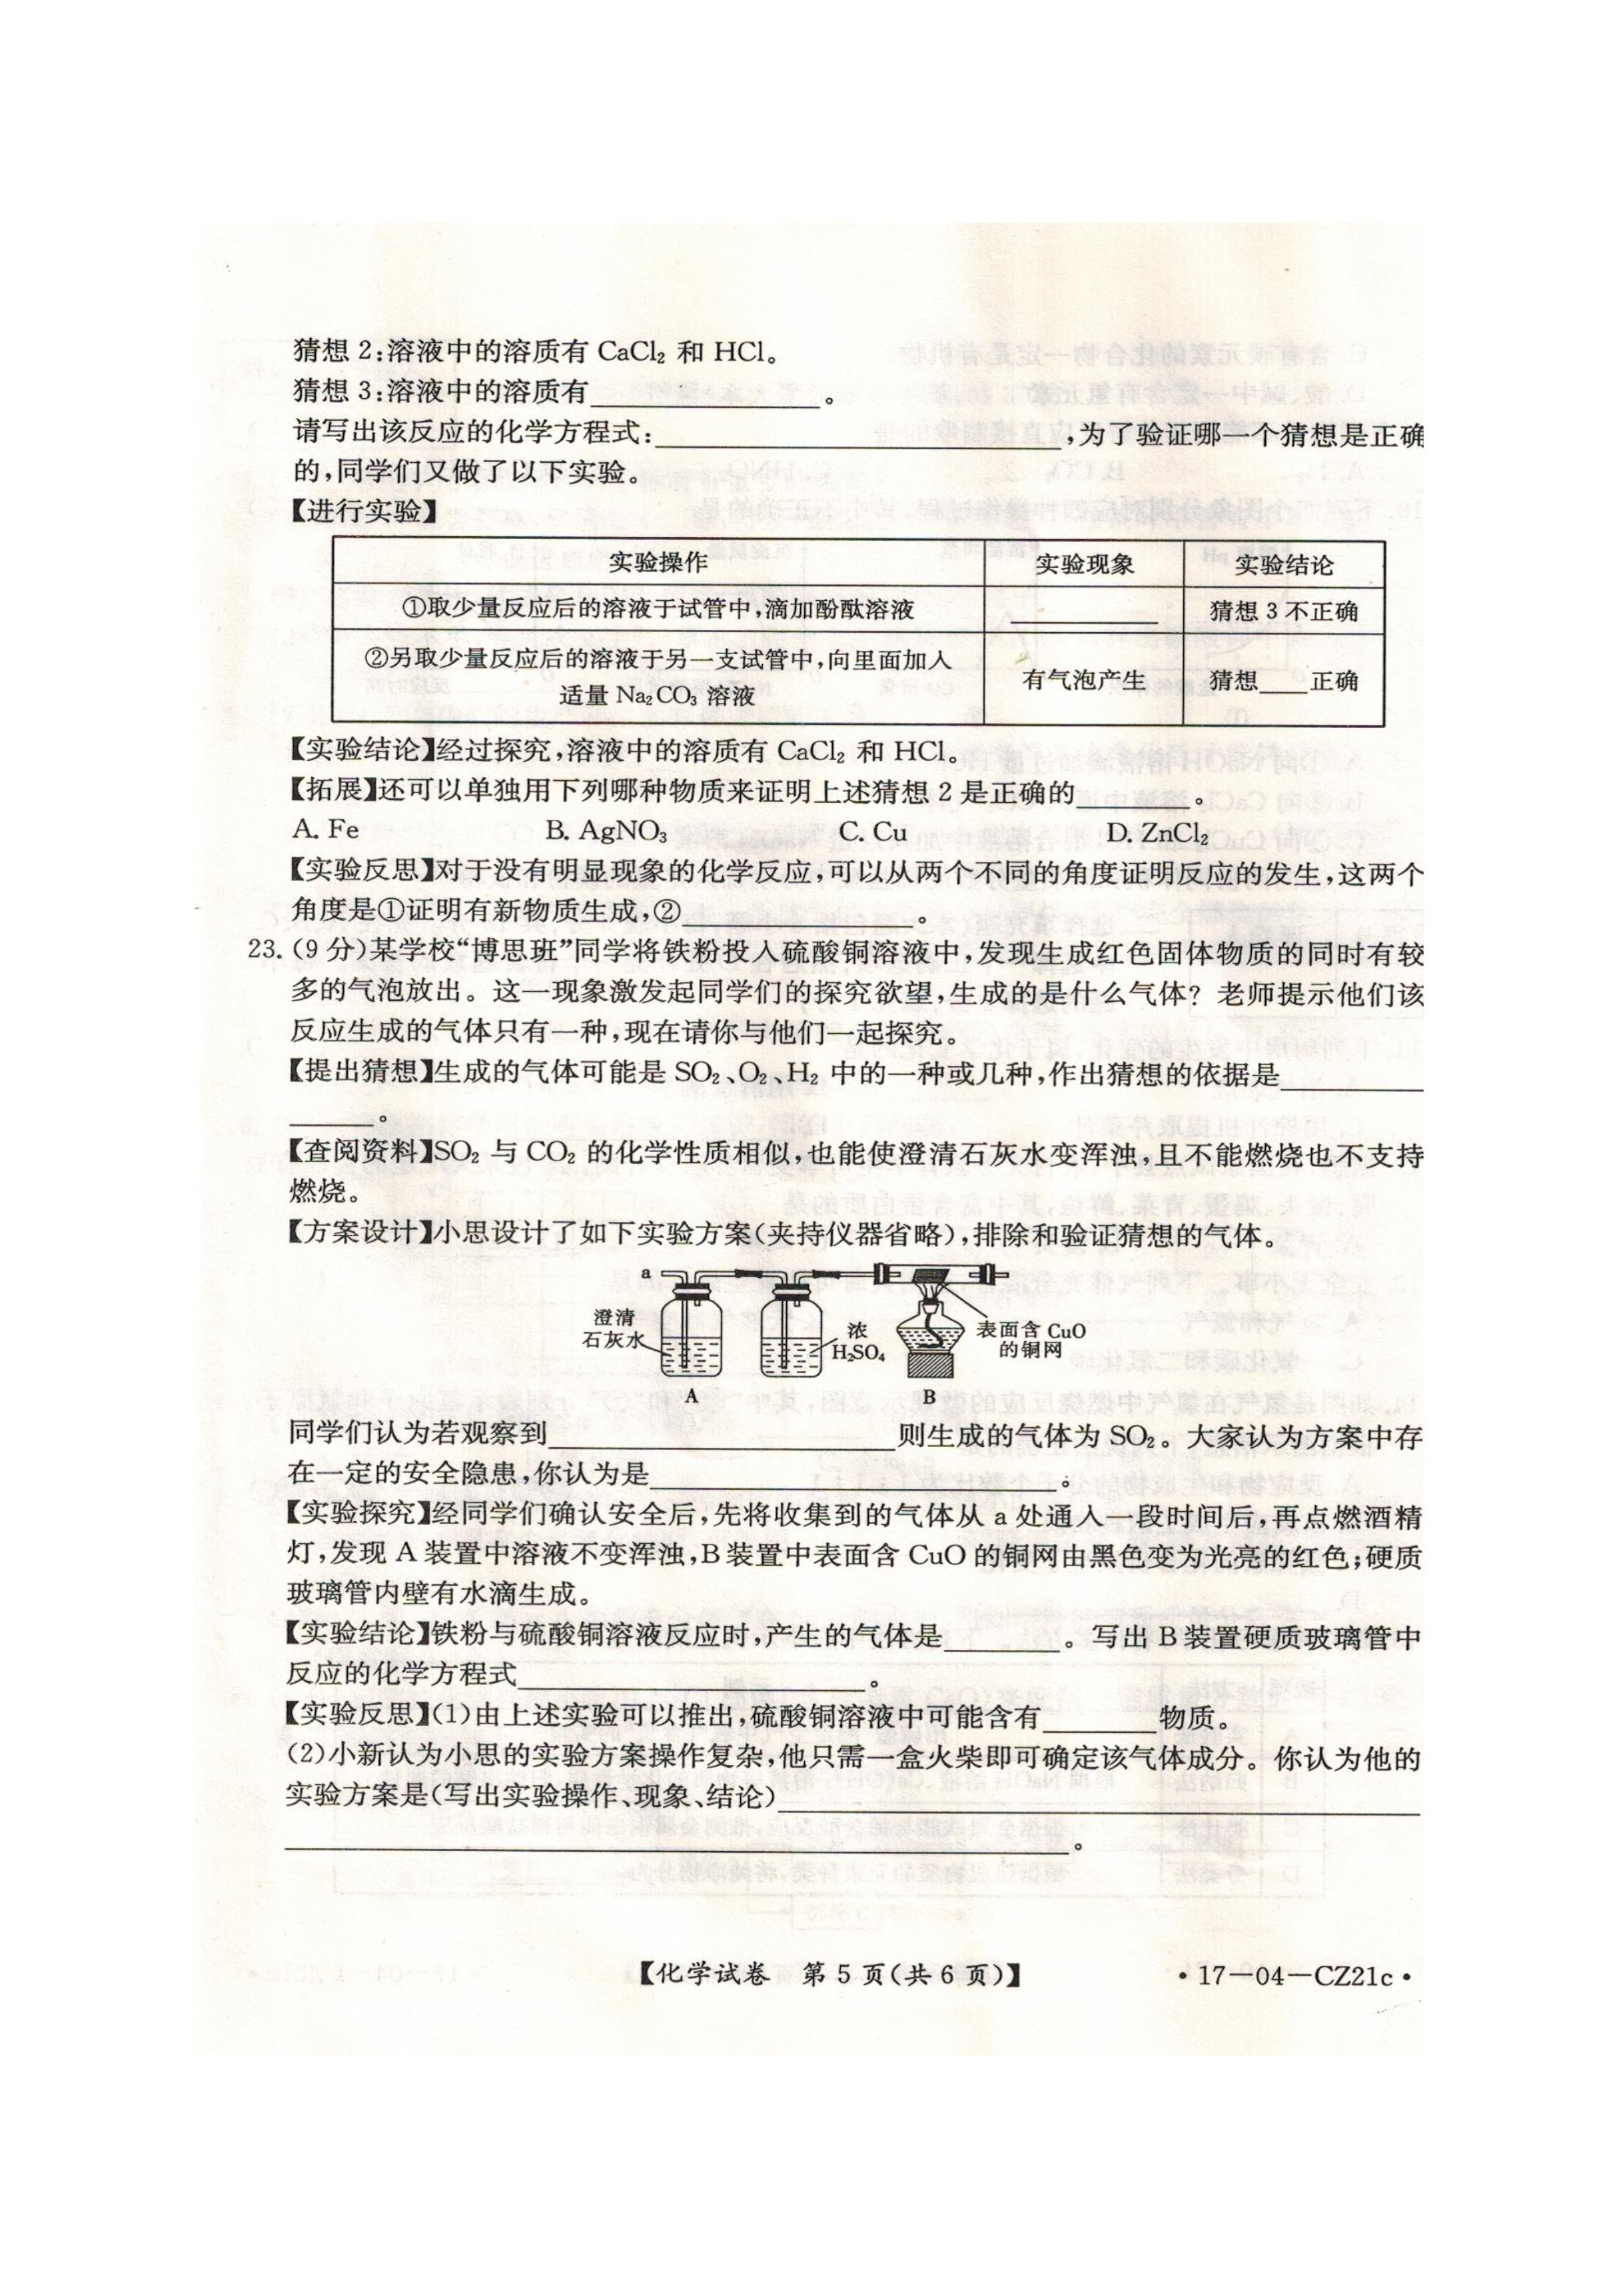 猜想 2:溶液中的溶质有 CaCl₂ 和 HCl。
猜想 3:溶液中的溶质有____________。
请写出该反应的化学方程式:____________,为了验证哪一个猜想是正确
的,同学们又做了以下实验。
【进行实验】
实验操作 实验现象 实验结论
①取少量反应后的溶液于试管中,滴加酚酞溶液 ________ 猜想 3 不正确
②另取少量反应后的溶液于另一支试管中,向里面加入
适量 Na₂CO₃ 溶液 有气泡产生 猜想____正确
【实验结论】经过探究,溶液中的溶质有 CaCl₂ 和 HCl。
【拓展】还可以单独用下列哪种物质来证明上述猜想 2 是正确的________。
A. Fe B. AgNO₃ C. Cu D. ZnCl₂
【实验反思】对于没有明显现象的化学反应,可以从两个不同的角度证明反应的发生,这两个
角度是①证明有新物质生成,②____________。
23. (9 分)某学校“博思班”同学将铁粉投入硫酸铜溶液中,发现生成红色固体物质的同时有较
多的气泡放出。这一现象激发起同学们的探究欲望,生成的是什么气体? 老师提示他们该
反应生成的气体只有一种,现在请你与他们一起探究。
【提出猜想】生成的气体可能是 SO₂、O₂、H₂ 中的一种或几种,作出猜想的依据是________
______。
【查阅资料】SO₂ 与 CO₂ 的化学性质相似,也能使澄清石灰水变浑浊,且不能燃烧也不支持
燃烧。
【方案设计】小思设计了如下实验方案(夹持仪器省略),排除和验证猜想的气体。
a
澄清
石灰水
浓
H₂SO₄
表面含 CuO
的铜网
A B
同学们认为若观察到____________则生成的气体为 SO₂。大家认为方案中存
在一定的安全隐患,你认为是____________。
【实验探究】经同学们确认安全后,先将收集到的气体从 a 处通入一段时间后,再点燃酒精
灯,发现 A 装置中溶液不变浑浊,B 装置中表面含 CuO 的铜网由黑色变为光亮的红色;硬质
玻璃管内壁有水滴生成。
【实验结论】铁粉与硫酸铜溶液反应时,产生的气体是________。写出 B 装置硬质玻璃管中
反应的化学方程式____________。
【实验反思】(1)由上述实验可以推出,硫酸铜溶液中可能含有________物质。
(2)小新认为小思的实验方案操作复杂,他只需一盒火柴即可确定该气体成分。你认为他的
实验方案是(写出实验操作、现象、结论)____________
____________。
【化学试卷 第 5 页(共 6 页)】 ·17—04—CZ21c·